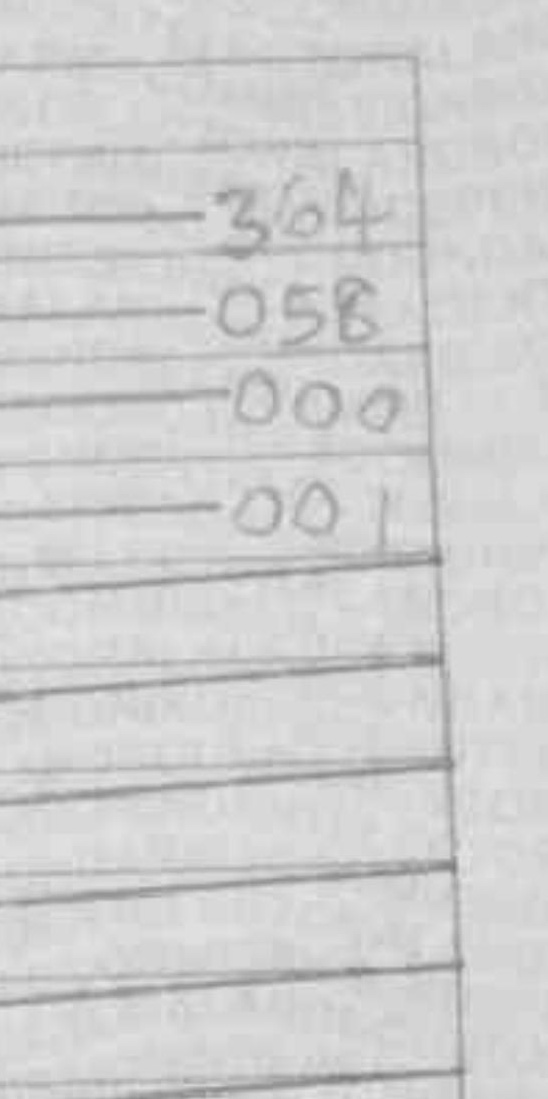 364
058
000
001